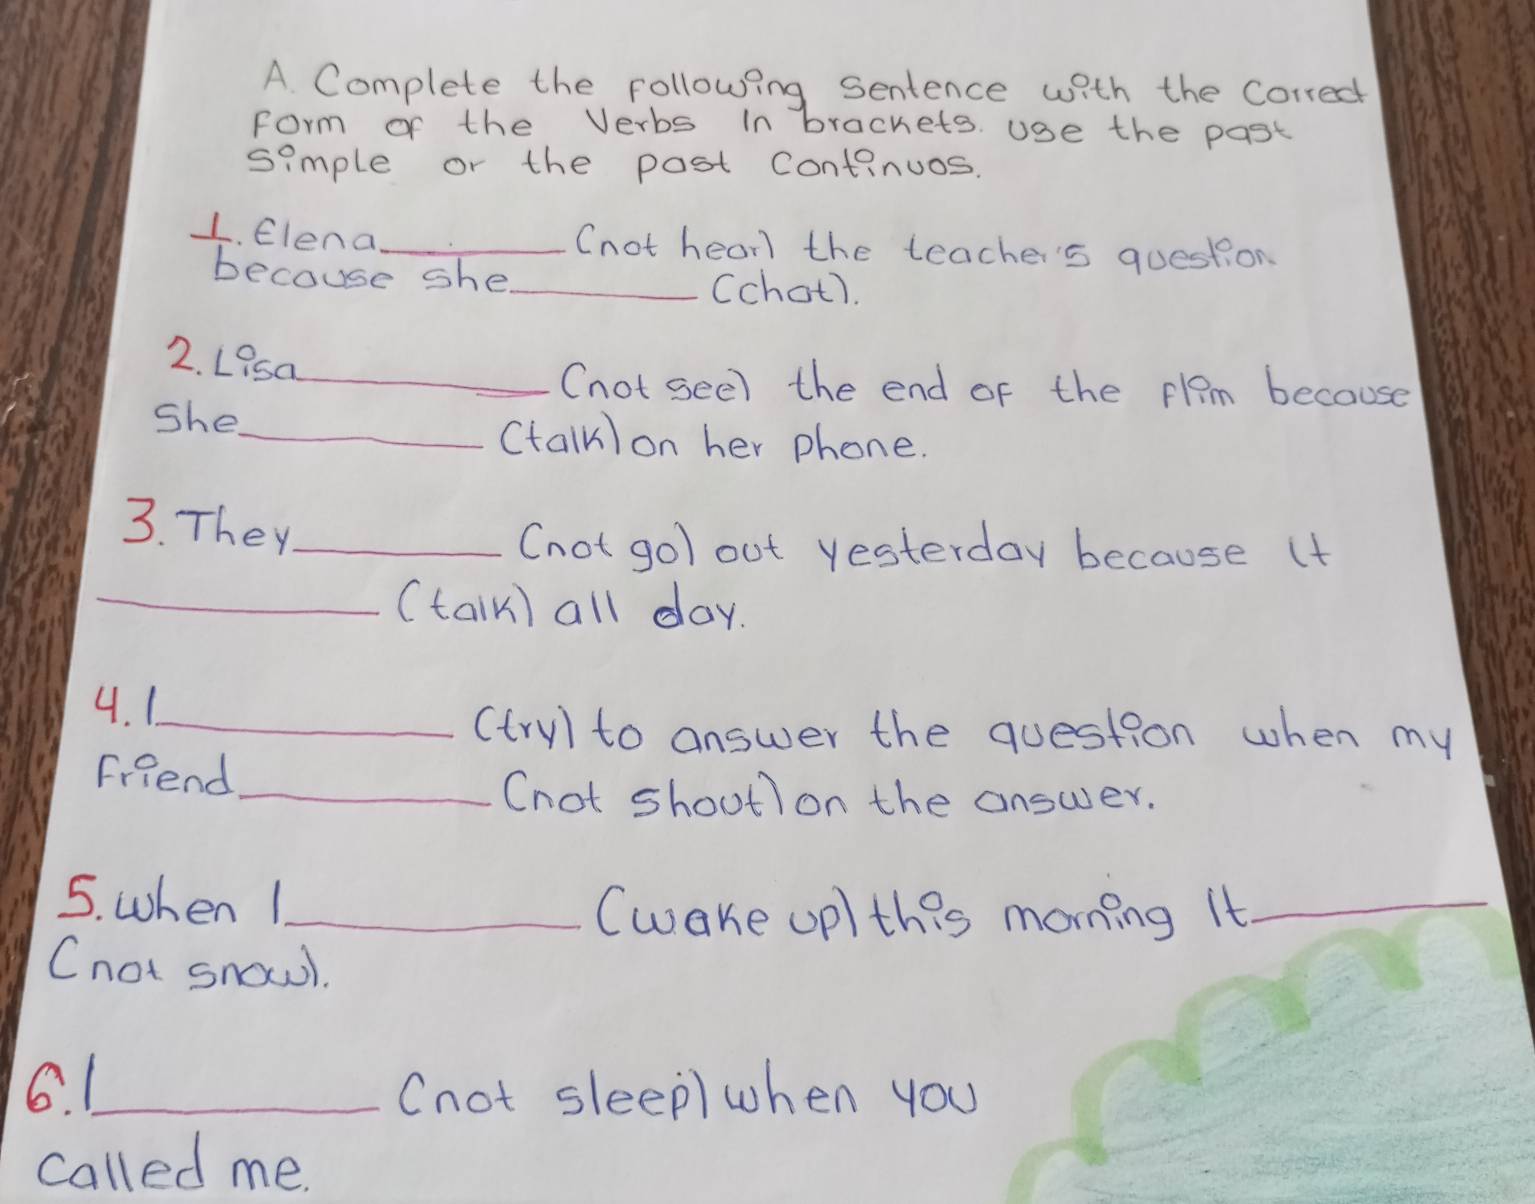 A. Complete the following sentence with the correct
form of the verbs in brackets. use the past
simple or the past continuos.
1. Elena__________ (not hear) the teacher's question
because she__________ (chat).
2. Lisa__________ (not see) the end of the flim because
she__________ (talk) on her phone.
3. They__________ (not go) out yesterday because it
__________ (talk) all day.
4. I__________ (try) to answer the question when my
friend__________ (not shout) on the answer.
5. when I__________ (wake up) this morning it__________
(not snow).
6. I__________ (not sleep) when you
called me.